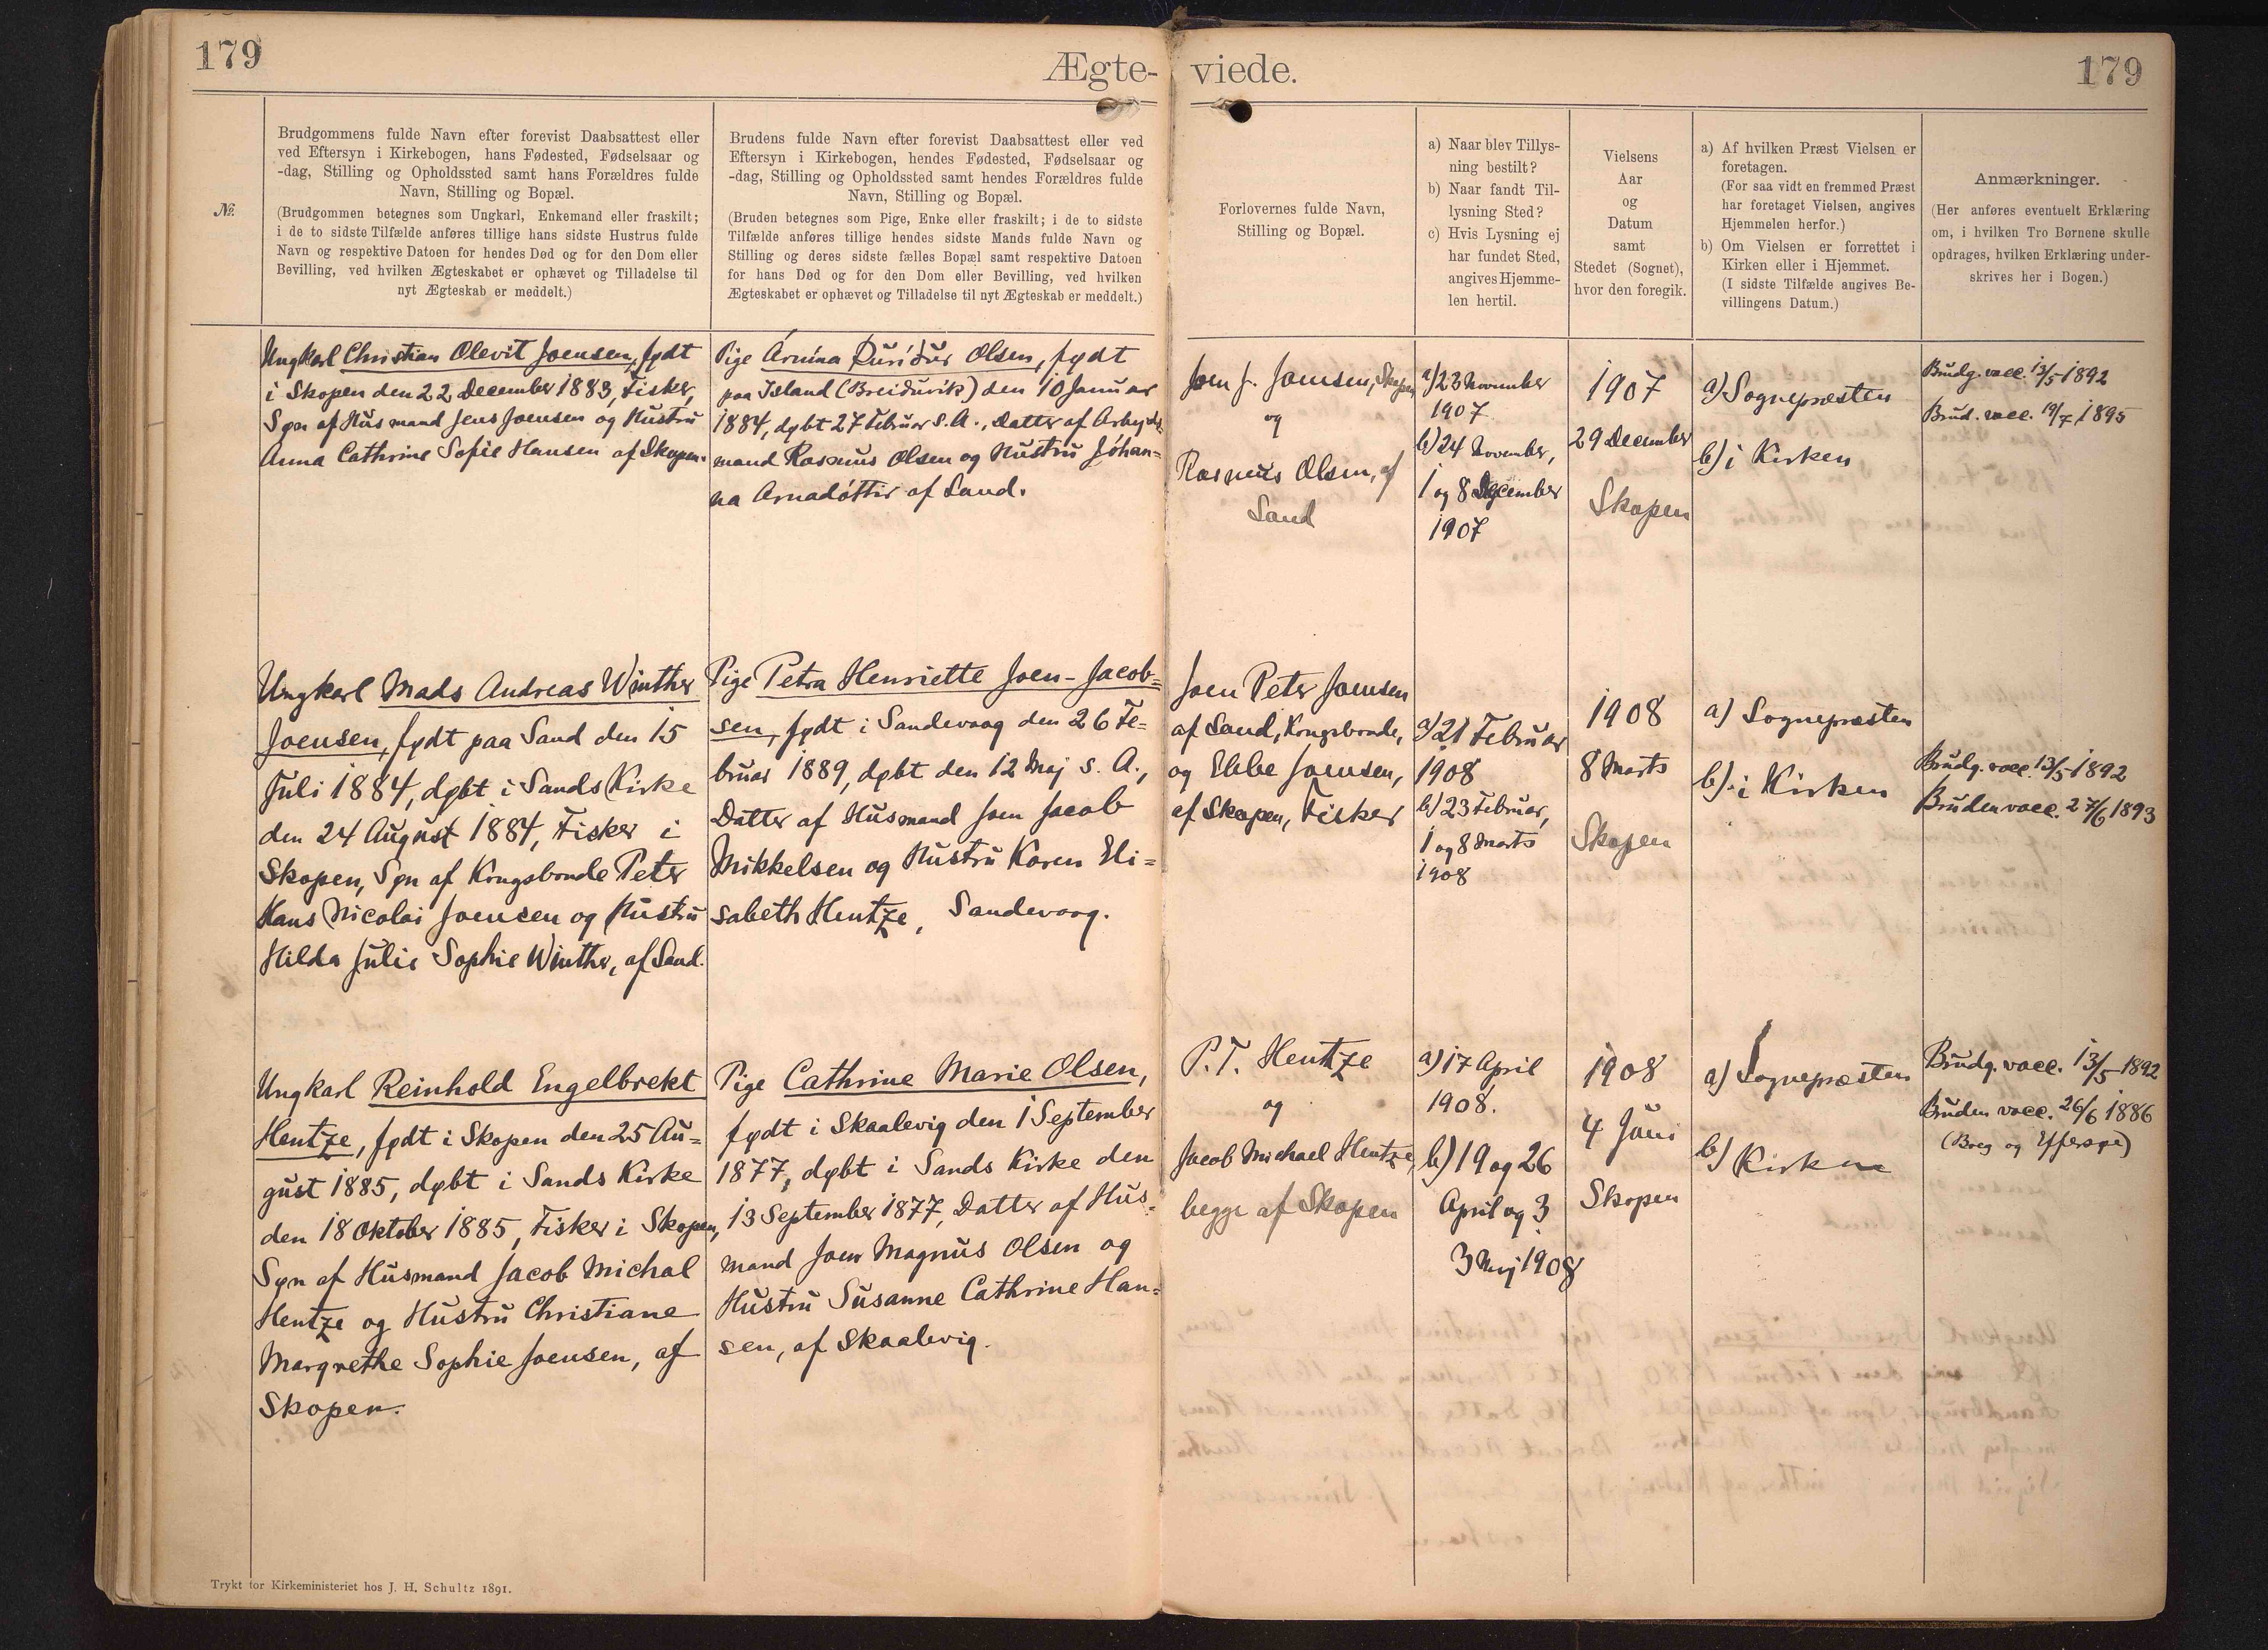 179
Ægte-
viede.
179
№.
Brudgommens fulde Navn efter forevist Daabsattest eller
ved Eftersyn i Kirkebogen, hans Fødested, Fødselsaar og
-dag, Stilling og Opholdssted samt hans Forældres fulde
Navn, Stilling og Bopæl.
(Brudgommen betegnes som Ungkarl, Enkemand eller fraskilt;
i de to sidste Tilfælde anføres tillige hans sidste Hustrus fulde
Navn og respektive Datoen for hendes Død og for den Dom eller
Bevilling, ved hvilken Ægteskabet er ophævet og Tilladelse til
nyt Ægteskab er meddelt.)
Brudens fulde Navn efter forevist Daabsattest eller ved
Eftersyn i Kirkebogen, hendes Fødested, Fødselsaar og
-dag, Stilling og Opholdssted samt hendes Forældres fulde
Navn, Stilling og Bopæl.
(Bruden betegnes som Pige, Enke eller fraskilt; i de to sidste
Tilfælde anføres tillige hendes sidste Mands fulde Navn og
Stilling og deres sidste fælles Bopæl samt respektive Datoen
for hans Død og for den Dom eller Bevilling, ved hvilken
Ægteskabet er ophævet og Tilladelse til nyt Ægteskab er meddelt.)
Forlovernes fulde Navn,
Stilling og Bopæl.
a) Naar blev Tillys-
ning bestilt?
b) Naar fandt Til-
lysning Sted?
c) Hvis Lysning ej
har fundet Sted,
angives Hjemme-
len hertil.
Vielsens
Aar
og
Datum
samt
Stedet (Sognet),
hvor den foregik.
a) Af hvilken Præst Vielsen er
foretagen.
(For saa vidt en fremmed Præst
har foretaget Vielsen, angives
Hjemmelen herfor.)
b) Om Vielsen er forrettet i
Kirken eller i Hjemmet.
(I sidste Tilfælde angives Be-
villingens Datum.)
Anmærkninger.
(Her anføres eventuelt Erklæring
om, i hvilken Tro Børnene skulle
opdrages, hvilken Erklæring under-
skrives her i Bogen.)
Ungkarl Christian Olevit Joensen, født
i Skopen den 22 December 1883, Fisker,
Søn af Husmand Jens Joensen og Hustru
Anna Cathrine Sofie Hansen af Skopen.
Pige Árnína Ðuríður Olsen, født
paa Island (Breiðuvík) den 10 Januar
1884, døbt 27 Februar s. A., Datter af Arbejds-
mand Rasmus Olsen og Hustru Jóhan-
na Arnadóttir af Sand.
Joen J. Joensen, Skopen
og
Rasmus Olsen, af
Sand
a) 23 November
1907
b) 24 November,
1 og 8 December
1907
1907
29 December
Skopen
a) Sognepræsten
b) i Kirken
Brudg. vacc. 13/5 1892
Brud. vacc. 19/7 1895
Ungkarl Mads Andreas Winther
Joensen, født paa Sand den 15
Juli 1884, døbt i Sands Kirke
den 24 August 1884, Fisker i
Skopen, Søn af Kongsbonde Peter
Hans Nicolai Joensen og Hustru
Hilda Julie Sophie Winther, af Sand.
Pige Petra Henriette Joen-Jacob=
sen, født i Sandevaag den 26 Fe=
bruar 1889, døbt den 12 Maj s. A.,
Datter af Husmand Joen Jacob
Mikkelsen og Hustru Karen Eli=
sabeth Hentze, Sandevaag.
Joen Peter Joensen
af Sand, Kongsbonde,
og Ebbe Joensen,
af Skopen, Fisker
a) 21 Februar
1908
b) 23 Februar,
1 og 8 Marts
1908
1908
8 Marts
Skopen
a) Sognepræsten
b) i Kirken
Brudg. vacc. 13/5 1892
Bruden vacc. 27/6 1893
Ungkarl Reinhold Engelbrekt
Hentze, født i Skopen den 25 Au=
gust 1885, døbt i Sands Kirke
den 18 Oktober 1885, Fisker i Skopen,
Søn af Husmand Jacob Michal
Hentze og Hustru Christiane
Margrethe Sophie Joensen, af
Skopen.
Pige Cathrine Marie Olsen,
født i Skaalevig den 1 September
1877, døbt i Sands Kirke den
13 September 1877, Datter af Hus=
mand Joen Magnus Olsen og
Hustru Susanne Cathrine Han=
sen, af Skaalevig.
P. T. Hentze
og
Jacob Michael Hentze,
begge af Skopen
a) 17 April
1908.
b) 19 og 26
April og 3
3 Maj 1908
1908
4 Juni
Skopen
a) Sognepræsten
b) Kirken
Brudg. vacc. 13/5 1892
Bruden vacc. 26/6 1886
Trykt for Kirkeministeriet hos J. H. Schultz 1891.